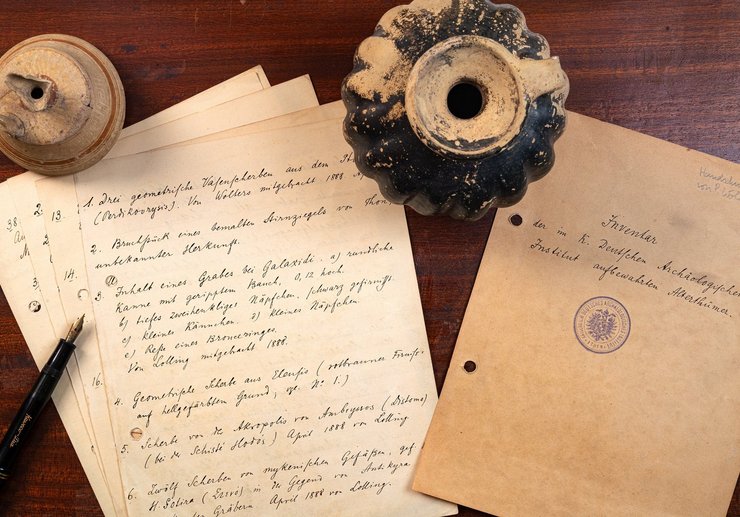 38.
2.
13.
3.
14.
16.
1. Drei geometrische Vasenscherben aus dem
(Perdikovrysis). Von Wolters mitgebracht 1888.
2. Bruchstück eines bemalten Stirnziegels von Thon,
unbekannter Herkunft.
3. Inhalt eines Grabes bei Galaxidi. a) rundliche
Kanne mit geripptem Bauch, 0,12 hoch
b) tiefes zweihenkliges Näpfchen, schwarz gefirnißt.
c) kleines Kännchen. d) kleines Näpfchen.
e) Reste eines Bronceringes.
Von Lolling mitgebracht 1888.
4. Geometrische Scherbe aus Eleusis (rotbrauner Firniß
auf hellgefärbtem Grund, vgl. N. 1.)
5. Scherbe von der Akropolis von Ambrysos (Distomo)
(bei der Schisti Hodós) April 1888 von Lolling
6. Zwölf Scherben von mykenischen Gefäßen, gef.
H. Sotira in der Gegend von Antikyra
Gräbern. April 1888 von Lolling.
von P. Wol
Inventar
der im K. Deutschen Archäologischen
Institut aufbewahrten Alterthümer.